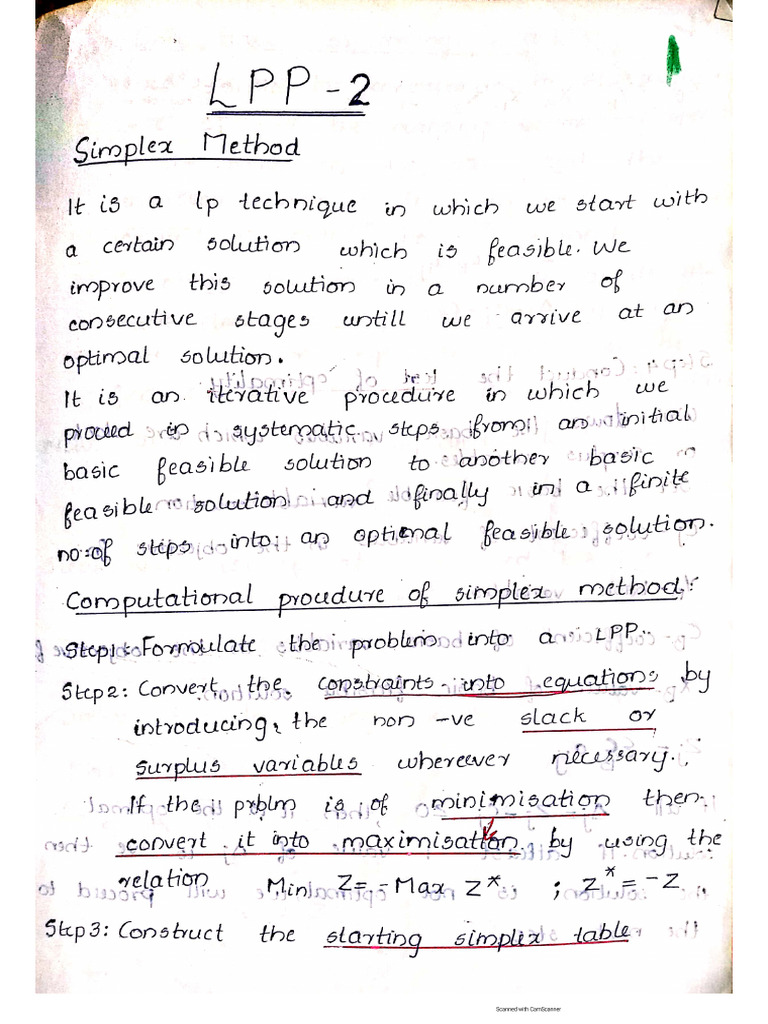 LPP - 2
Simplex Method
It is a lp technique in which we start with
a certain solution which is feasible. We
improve this solution in a number of
consecutive stages untill we arrive at an
optimal solution.
It is an iterative procedure in which we
proceed in systematic steps from an initial
basic feasible solution to another basic
feasible solution and finally in a finite
no: of steps into an optimal feasible solution.
Computational procedure of simplex method:
Step1: Formulate the problem into a LPP.
Step2: Convert the constraints into equations by
introducing the non -ve slack or
surplus variables whereever necessary.
If the prblm is of minimisation then
convert it into maximisation by using the
relation Min Z = - Max Z* ; Z* = -Z.
Step3: Construct the starting simplex table
Scanned with CamScanner